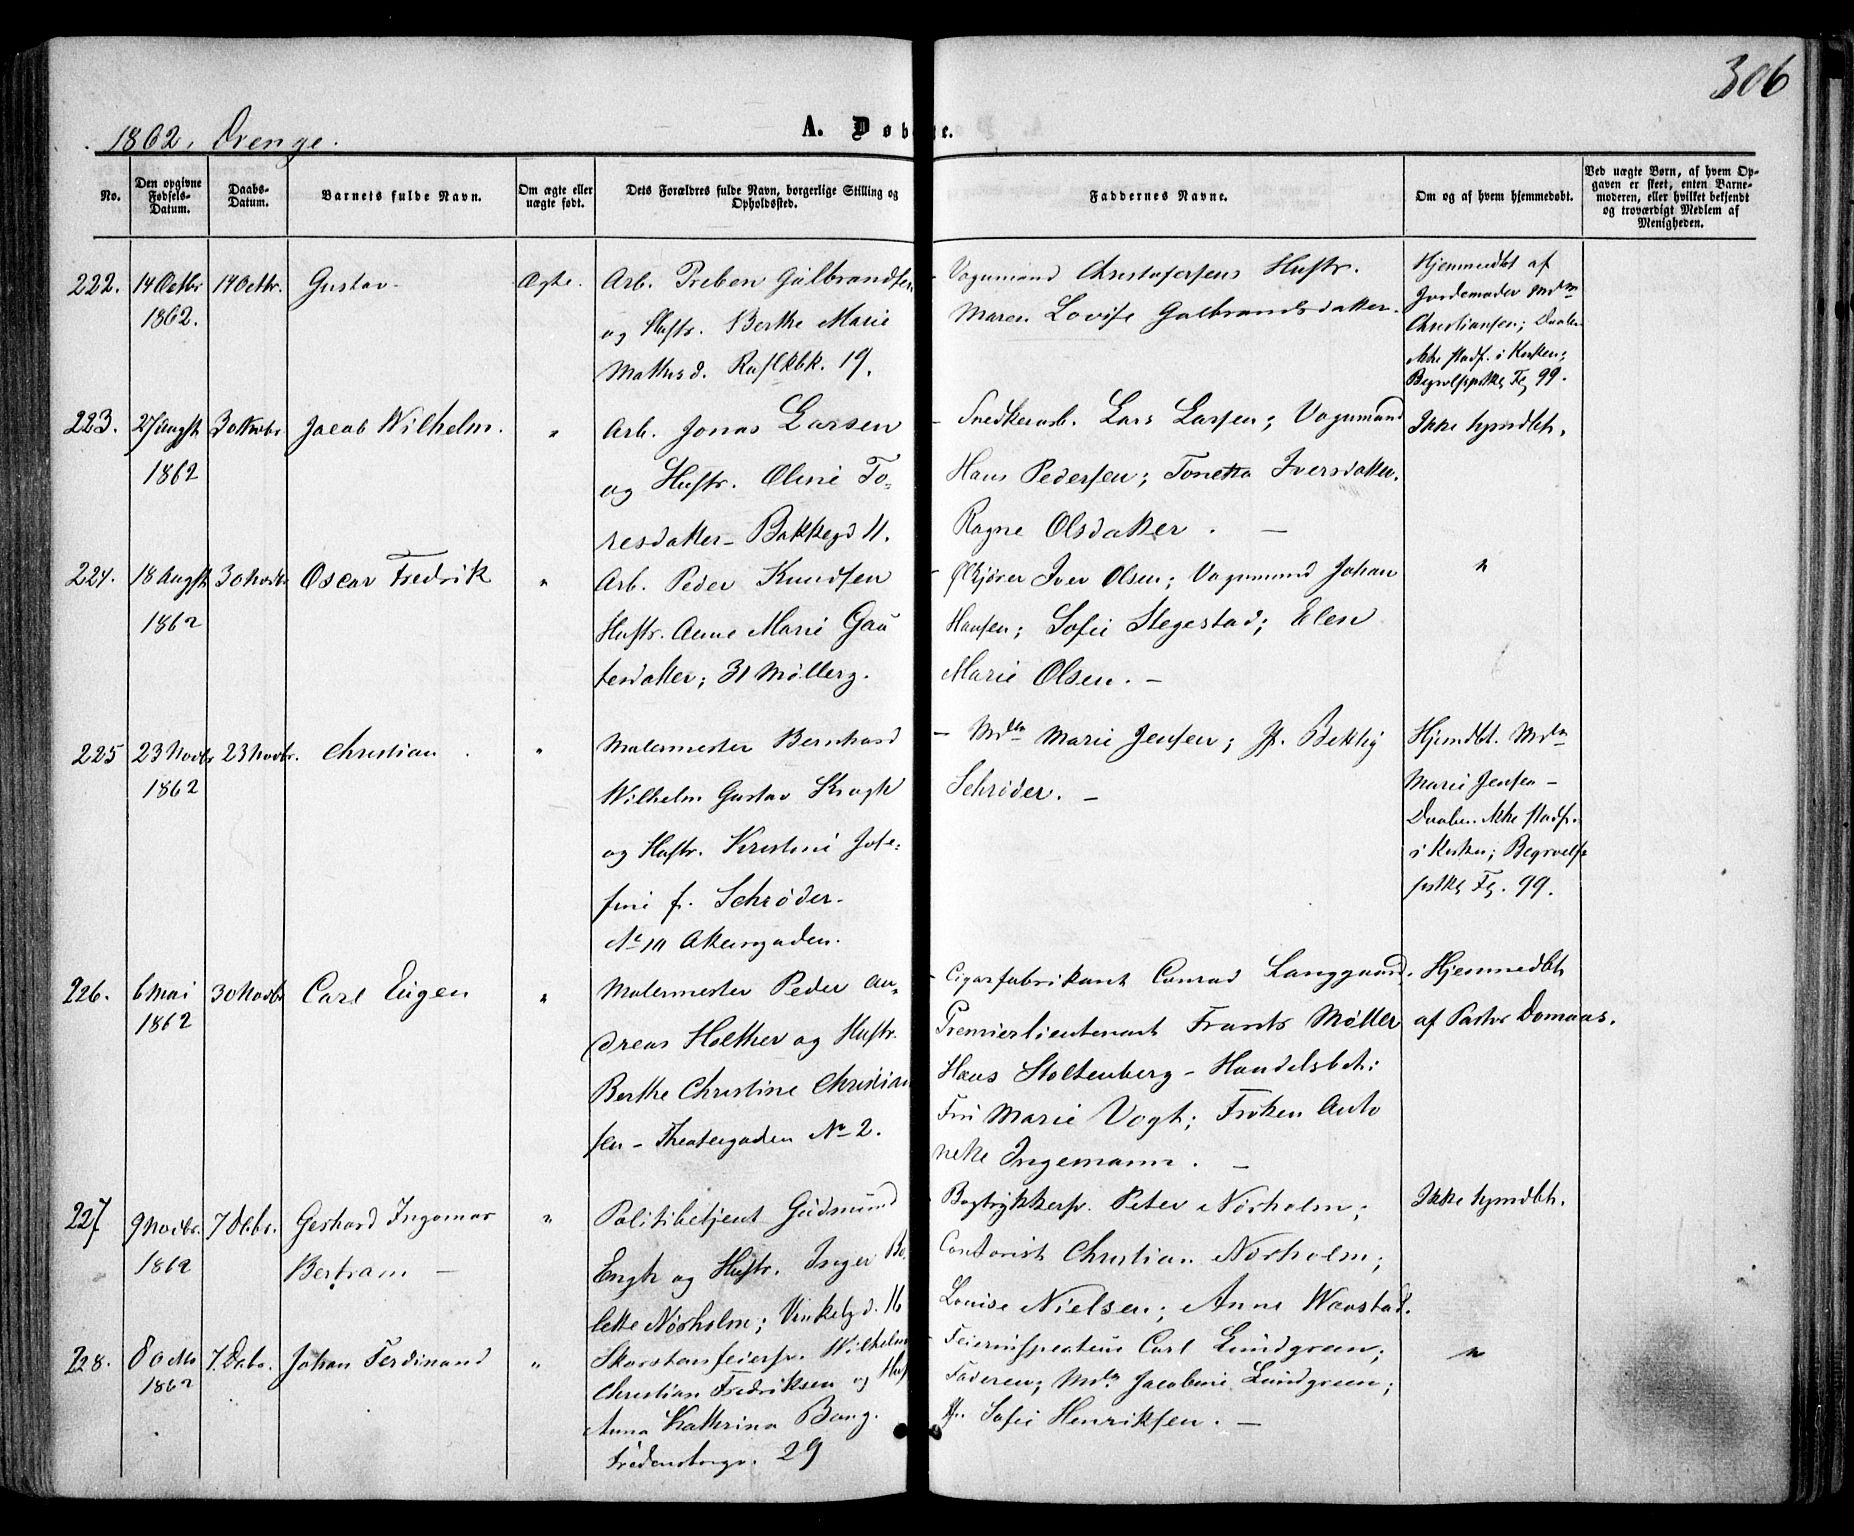 306
1862, Drenge.
A. Døbte.
No.
Den opgivne Fødsels-Datum.
Daabs-Datum.
Barnets fulde Navn.
Om ægte eller uægte født.
Dets Forældres fulde Navn, borgerlige Stilling og Opholdssted.
Faddernes Navne.
Om og af hvem hjemmedøbt.
Ved uægte Børn, af hvem Opgaven er skeet, enten Barnemoderen, eller hvilket bekjendt og troværdigt Medlem af Menigheden.
222. 14 Octbr 1862. 14 Octbr. Gustav Ægte.
Arb. Preben Gulbrandsen
og Hustr. Berthe Marie
Mathisd.
19.
Vognmand Christofersens Hustr.
Maren Lovise Gulbrandsdatter.
Hjemmedbt af
Jordemoder Mdm
Christiansen; Daaben
ikke stadf. i Kirken;
99.
223. 27 Augst 1862 30 Novbr Jacob Wilhelm. "
Arb. Jonas Larsen
og Hustr. Oline To-
resdatter - Bakkegd 11.
Snedkerarb. Lars Larsen; Vognmand
Hans Pedersen; Tonetta Iversdatter.
Ragne Olsdatter. -
Ikke hjmdbt.
224. 18 Augst 1862 30 Novbr. Oscar Fredrik "
Arb. Peder Knudsen
Hustr. Anne Marie Gau
tesdatter; 31 Møllerg.
Ølkjører Iver Olsen; Vognmand Johan
Hansen; Sofie Stegestad; Elen
Marie Olsen. -
"
225 23 Novbr 1862 23 Novbr. Christian "
Malermester Bernhard
Wilhelm Gustav Krogh
og Hustr. Kristine Jose-
fine f. Schrøder.
No 10 Akersgaden.
- Mdm Marie Jensen; Jf.
Schrøder. -
Hjemdbt. Mdm
Marie Jensen -
Daaben ikke stadf.
i Kirken;
99.
226. 6 Mai 1862 30 Novbr Carl Eugen "
Malermester Peder An-
dreas Holther og Hustr.
Berthe Christine Christian
sen - Theatergaden No 2.
Cigarfabrikant Conrad Langgaard,
Premierlieutenant Frants Møller
Hans Stoltenberg - Handelsbet:
Fru Marie Vogt; Frøken Anto
nette Ingemann. -
Hjemmedbt
af Pastor Domaas.
227 9 Novbr. 1862 7 Debr. Gerhard Ingomar
Bertram - "
Politibetjent Gudmund
Engh og Hustr. Inger Bo
lette Nørholm; Vinkelgd. 16
Bogtrykkersv. Peter Nørholm;
Contorist Christian Nørholm;
Louise Nielsen; Anne Wavstad.
Ikke hjmdbt.
228. 8 Octb 1862 7. Debr. Johan Ferdinand "
Skorstensfeiersv. Wilhelm
Christian Fredriksen og Hust
Anna Kathrina Bang.
29
Feierinspecteur Carl Lundgreen;
Faderen; Mdm Jacobine Lundgreen;
Sofie Henriksen. -
"